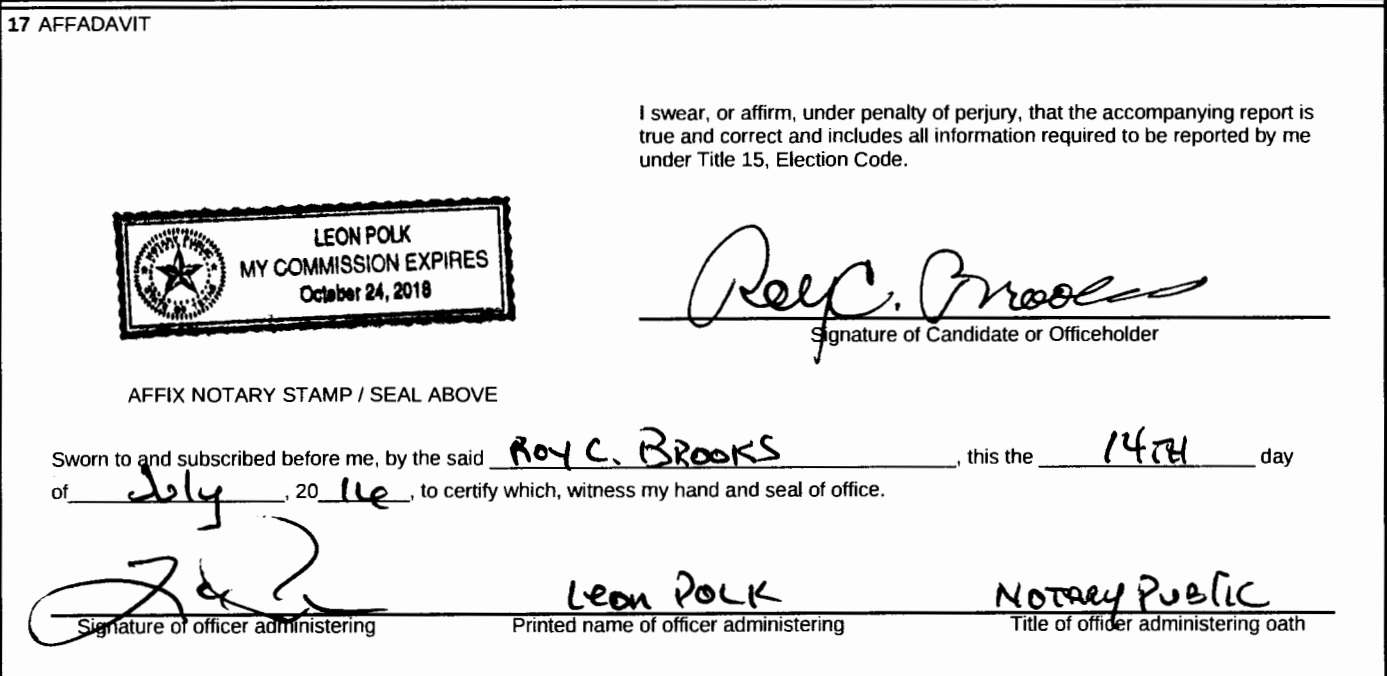 17 AFFADAVIT
I swear, or affirm, under penalty of perjury, that the accompanying report is
true and correct and includes all information required to be reported by me
under Title 15, Election Code.
LEON POLK
MY COMMISSION EXPIRES
October 24, 2018
Roy C. Brooks
Signature of Candidate or Officeholder
AFFIX NOTARY STAMP / SEAL ABOVE
Sworn to and subscribed before me, by the said ROY C. BROOKS, this the 14TH day
of July, 20 16, to certify which, witness my hand and seal of office.
Leon POLK NOTARY PUBLIC
Signature of officer administering Printed name of officer administering Title of officer administering oath